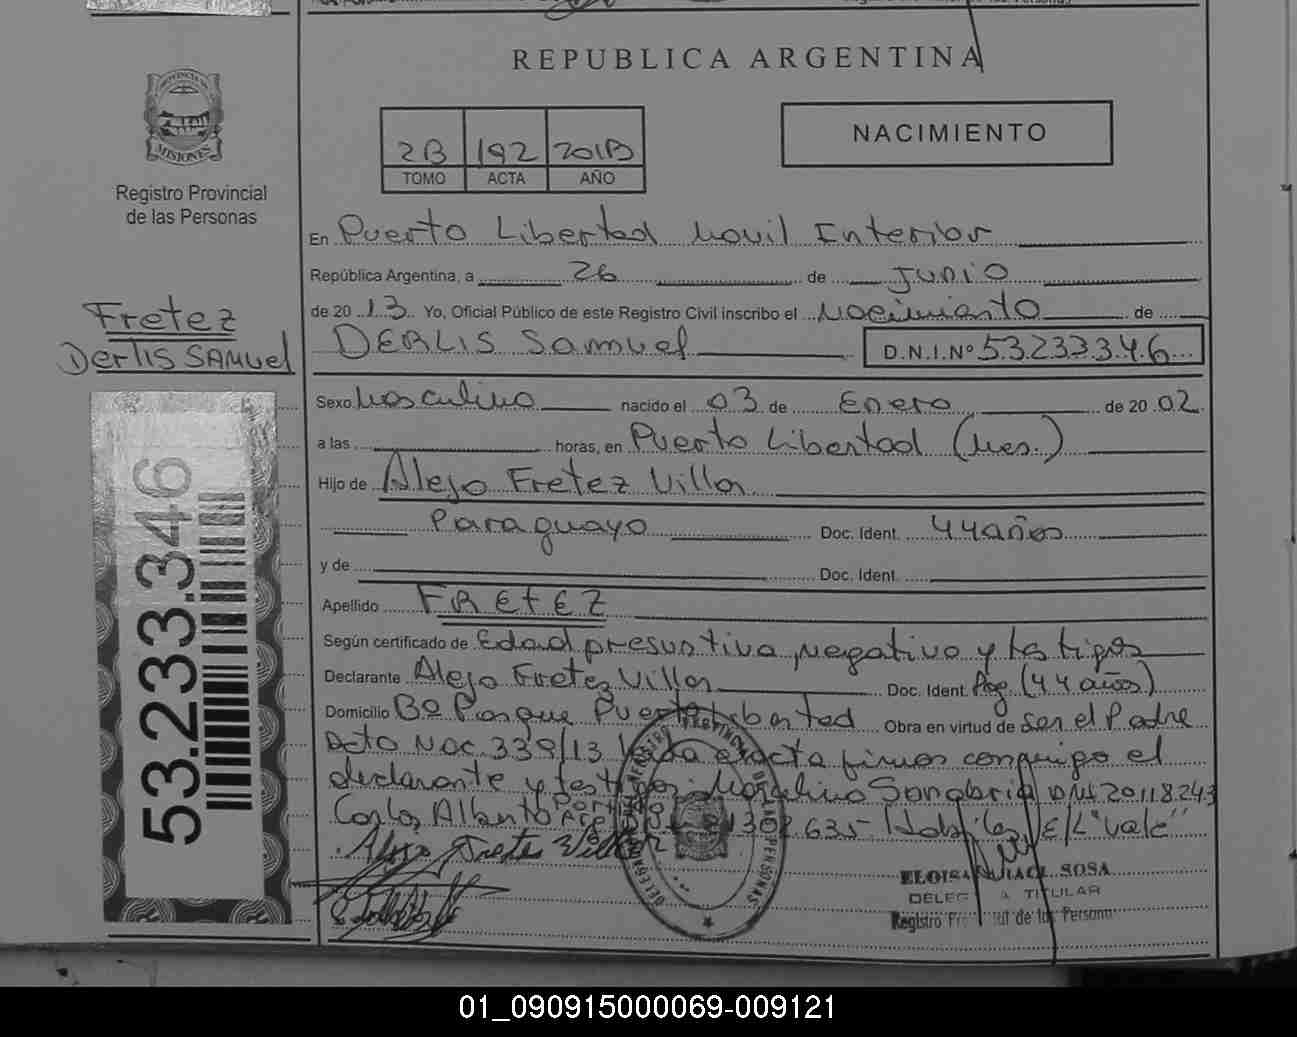 REPUBLICA ARGENTINA
PROVINCIA DE
MISIONES
Registro Provincial
de las Personas
NACIMIENTO
2B 192 2013
TOMO ACTA AÑO
En Puerto Libertad Movil Interior
República Argentina, a 26 de Junio
de 20 13 Yo, Oficial Público de este Registro Civil inscribo el Nacimiento de
DERLIS Samuel D.N.I.Nº 53.233.346
Fretez
Derlis SAMUEL
Sexo Masculino nacido el 03 de Enero de 20 02
a las horas, en Puerto Libertad (Mes.)
Hijo de Alejo Fretez Villar
Paraguayo Doc. Ident. 44 años
y de Doc. Ident.
Apellido FREtEZ
Según certificado de Edad presuntiva, negativo y testigos
Declarante Alejo Fretez Villar Doc. Ident. Pag (44 años)
Domicilio Bº Parque Puerto Libertad Obra en virtud de ser el Padre
Acto Nac. 339/13 acta firman conmigo el
declarante y testigos: Marcelino Sanabria DNI 20118243
Carlos Alberto 635 E/L "Vale"
Alejo Frete Villar
53.233.346
REGISTRO PROVINCIAL DE LAS PERSONAS
ELOISA SOSA
TITULAR
Registro de las Persona
01_090915000069-009121